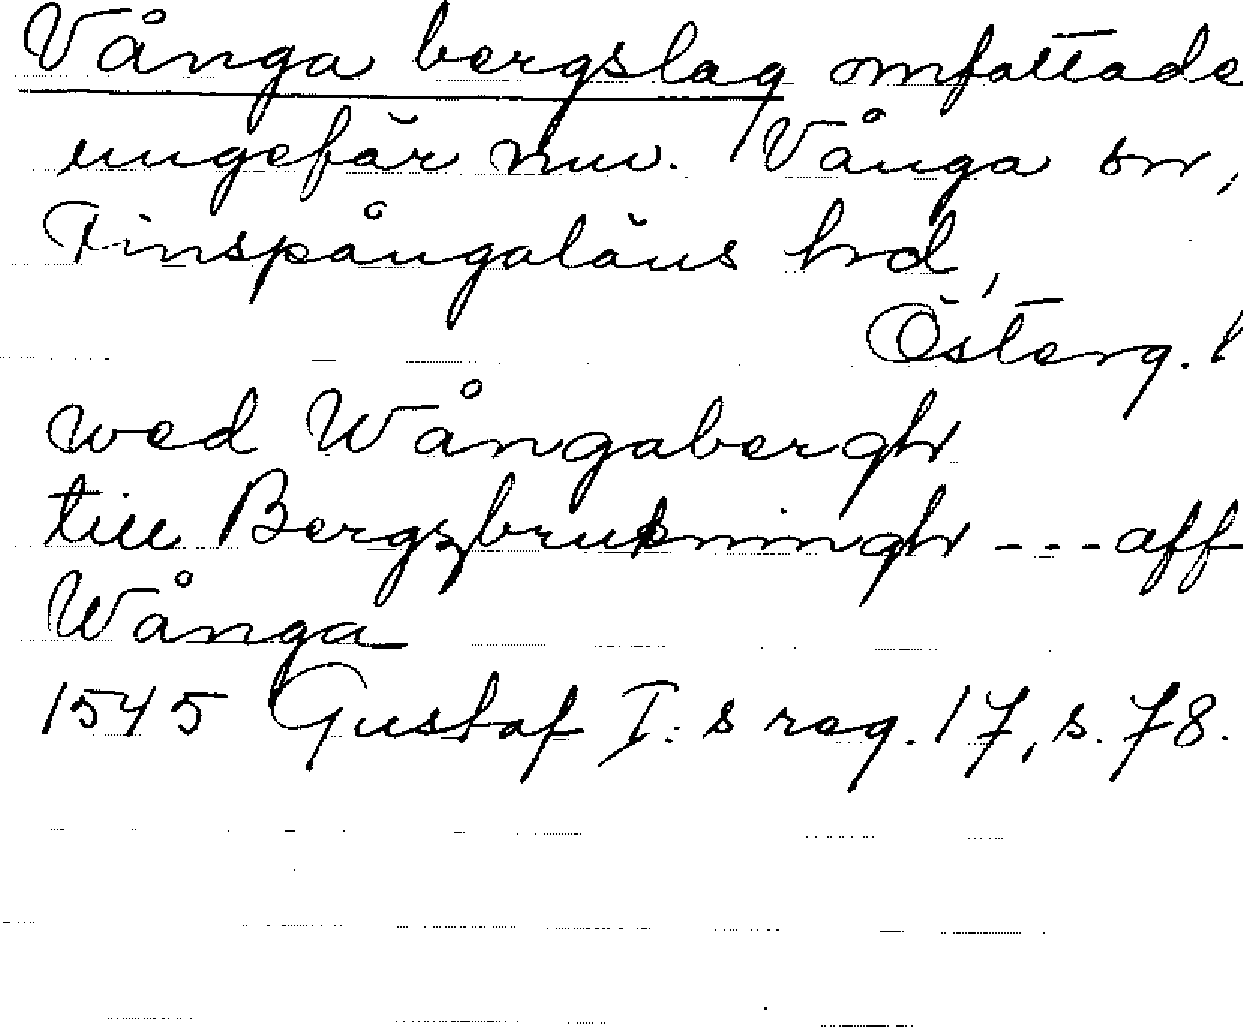 Vånga bergslag omfattade
ungefär nuv. Vånga sn,
Finspångaläns hrd,
Österg. l
wed Wångabergh
till Bergzbrukningh - - - aff
Wånga
1545 Gustaf I:s reg. 17, s. 78.